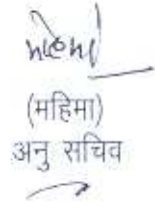 (महिमा)
अनु सचिव